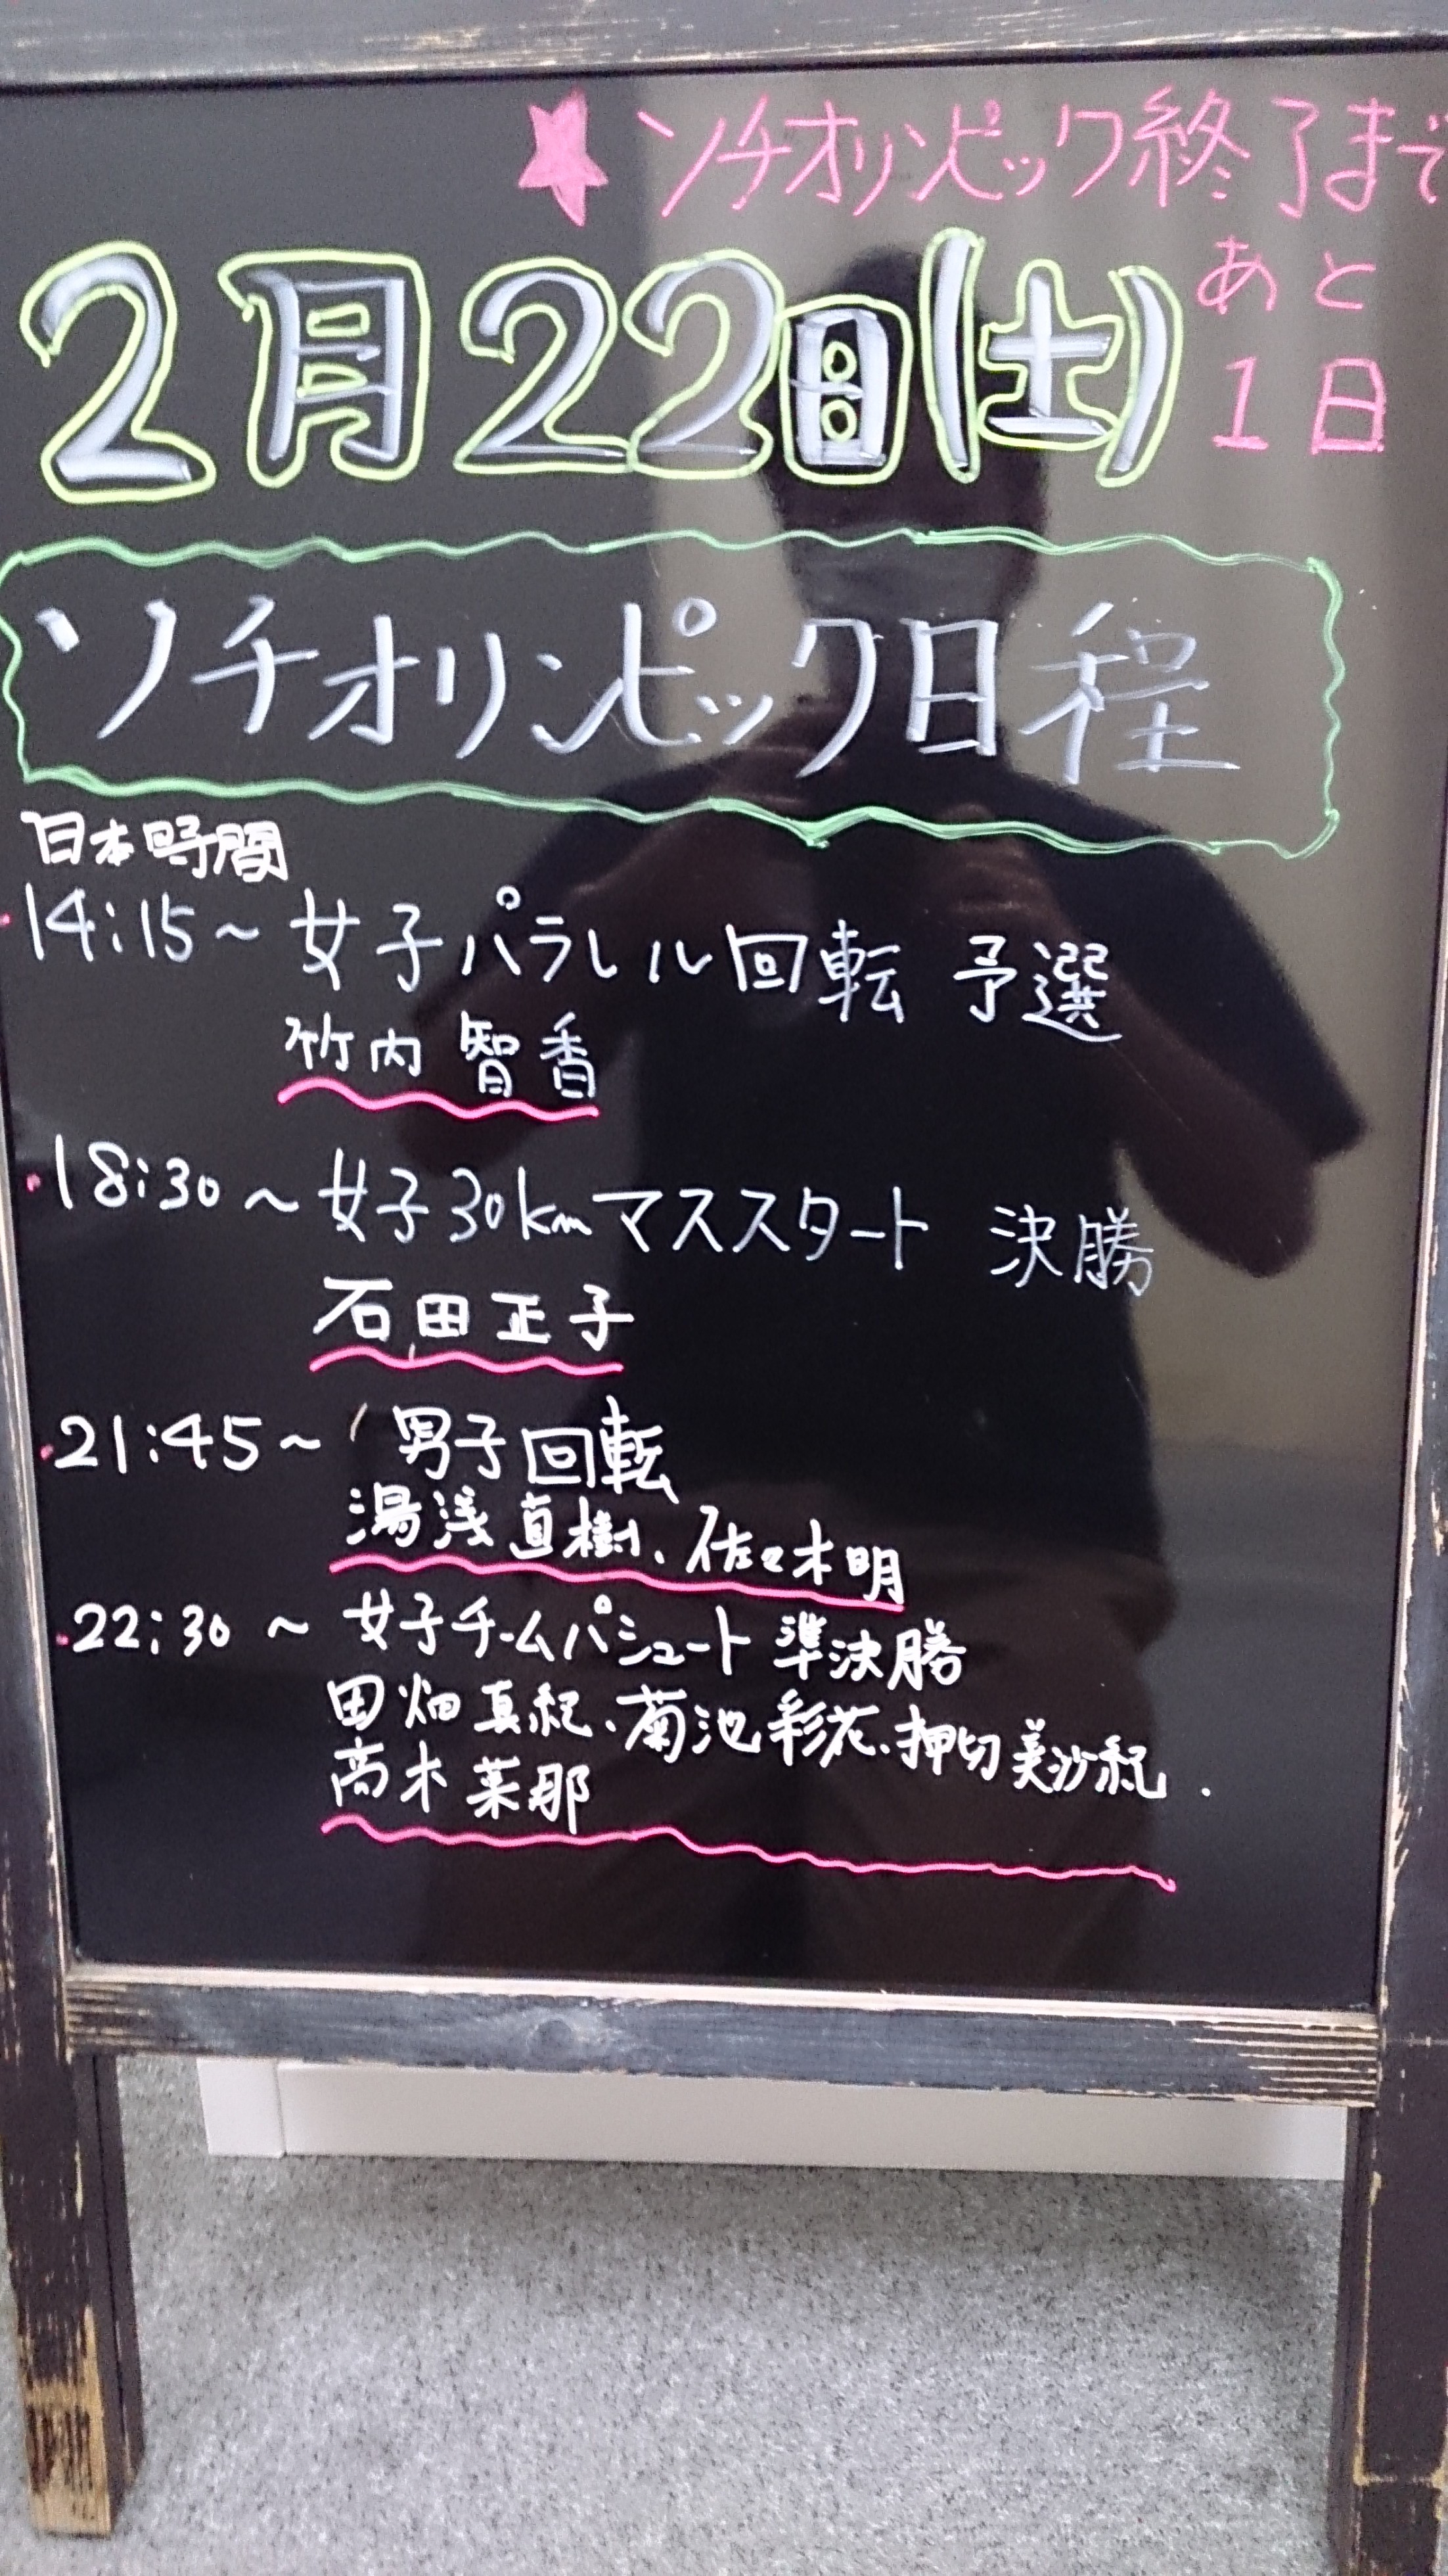 ★ソチオリンピック終了まで
あと
1日
2月22日(土)
ソチオリンピック日程
日本時間
・14:15～女子パラレル回転 予選
竹内 智香
・18:30～女子30kmマススタート 決勝
石田正子
・21:45～ 男子回転
湯浅直樹、佐々木明
・22:30～ 女子チームパシュート 準決勝
田畑真紀、菊池彩花、押切美沙紀、
高木菜那